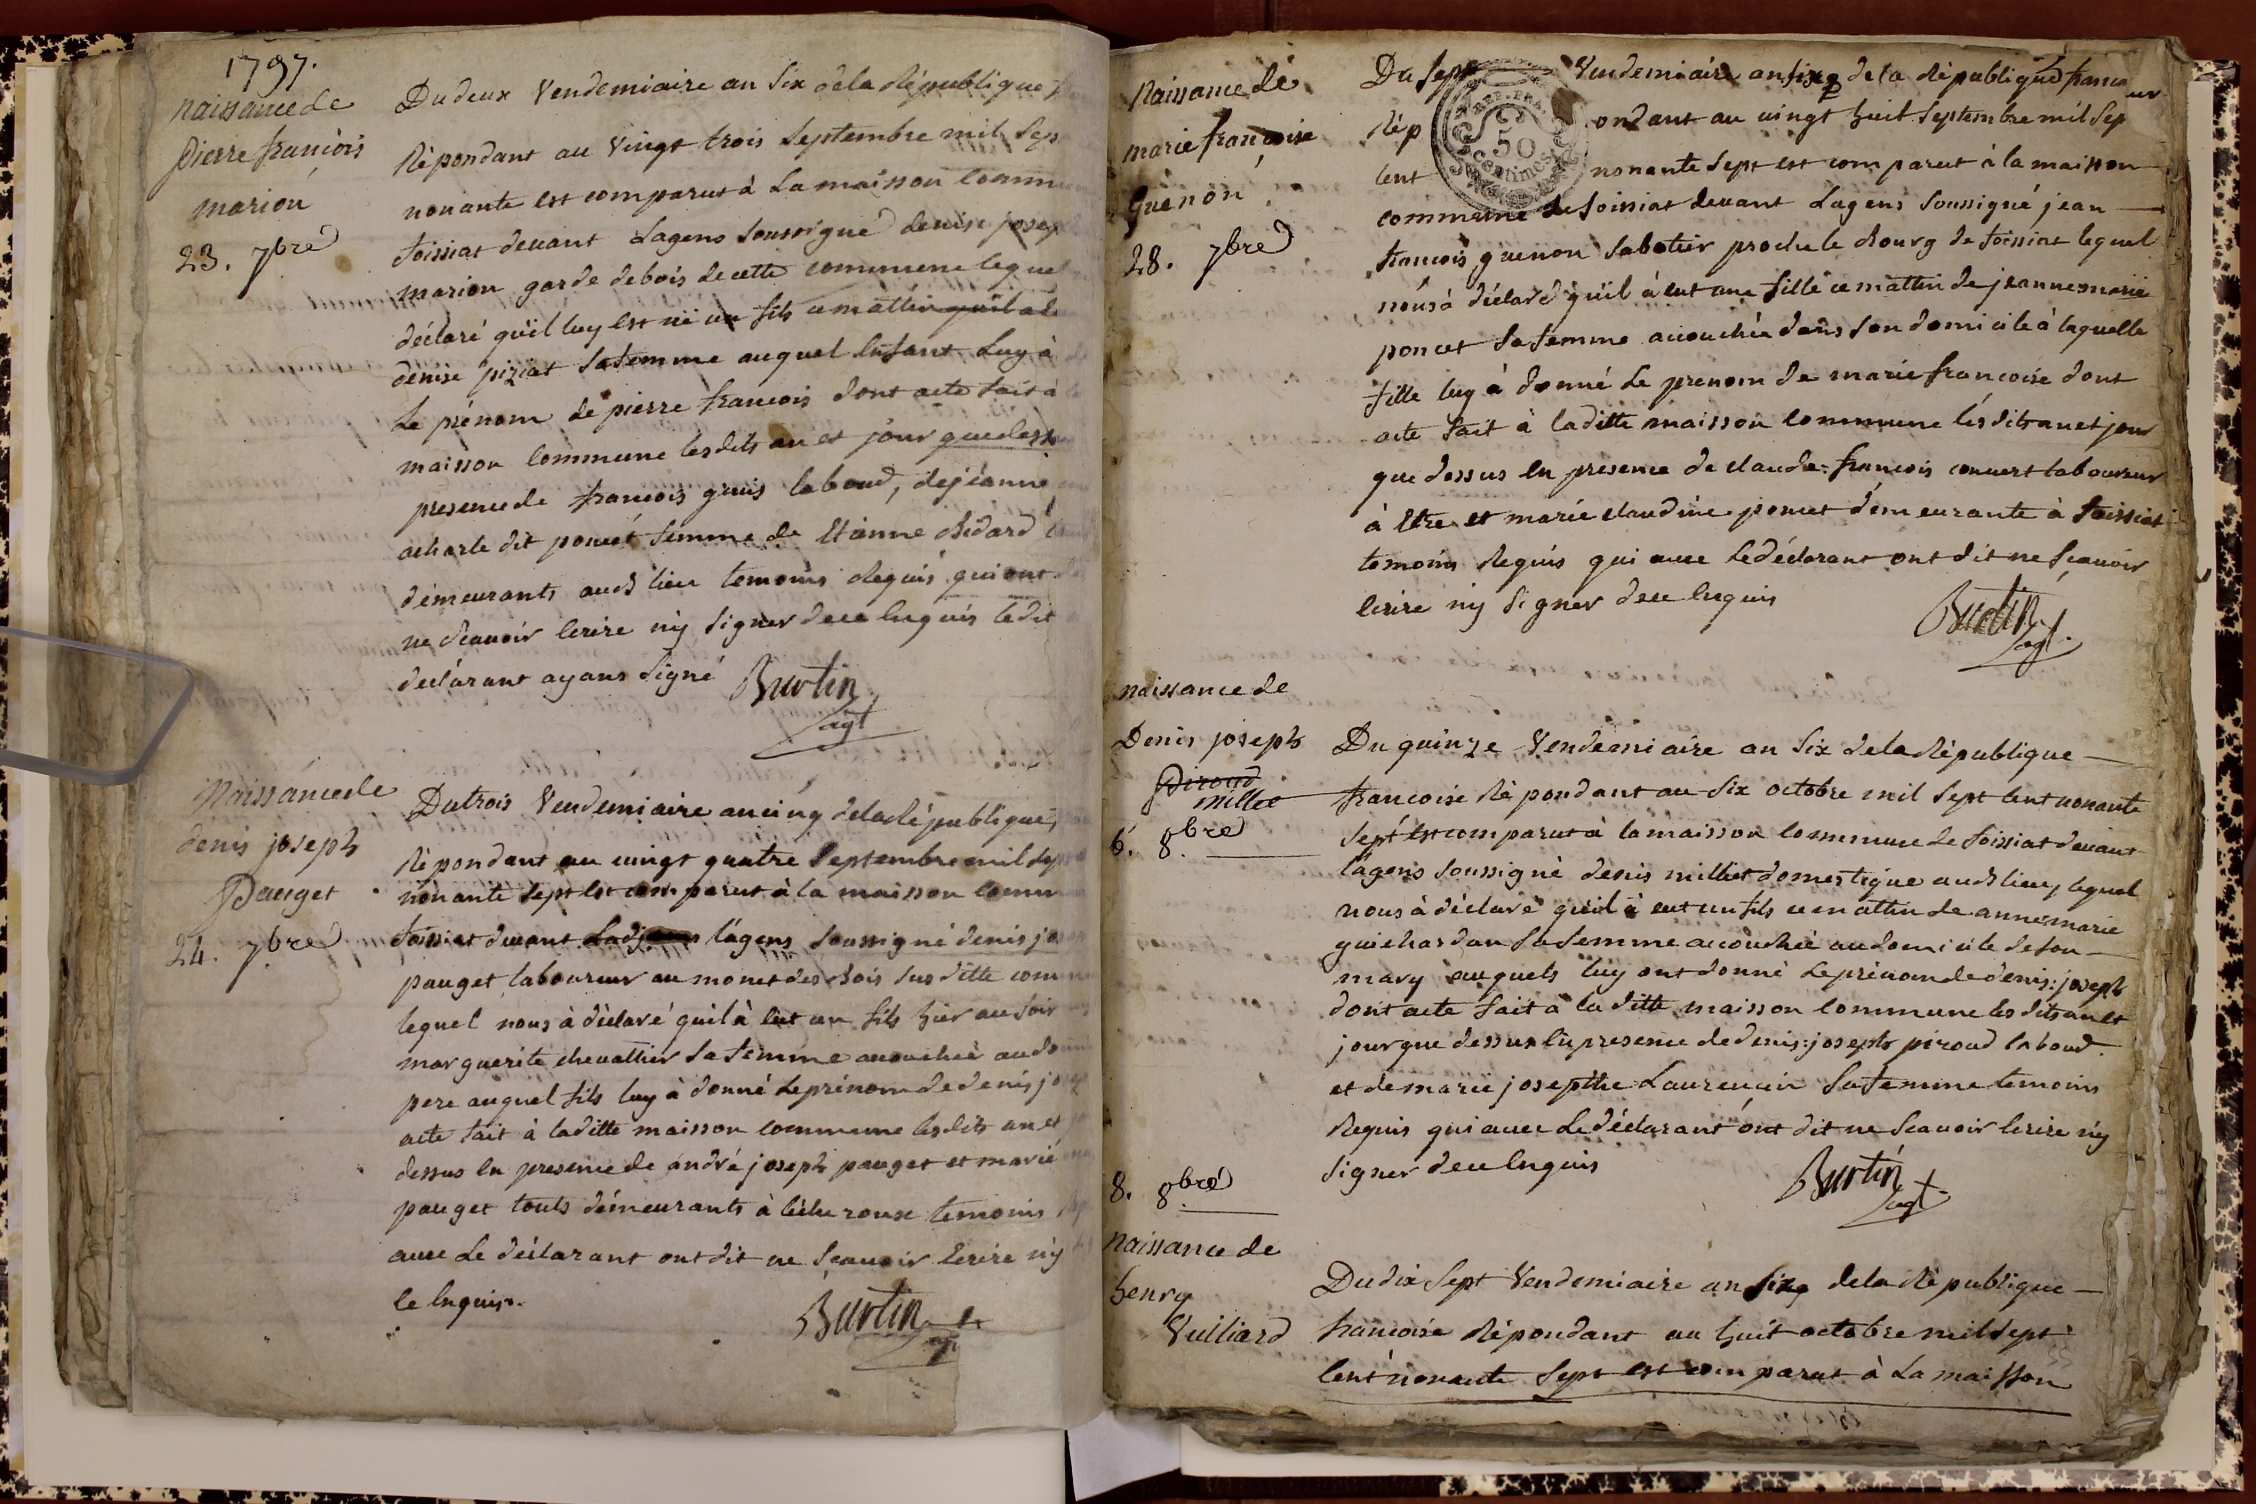 1797.
naissance de
pierre francois
marion
23. 7bre
Du deux Vendemiaire an Six de la République
Répondant au vingt trois Septembre mil Sep
nonante est comparut à La maison commu
foissiat devant Lagens soussigné denis josep
marion garde de bois de cette commune lequel
déclaré qu'il luy est né un fils ce mattin
denise piziat sa femme auquel Enfant Luy à
Le prénom de pierre francois dont acte fait à
maison Commune lesdits an et jour que dess
presence de francois guis laboud, de jéanne
acharle dit poncet femme de Etienne chidard
démeurants auds lieu temoins Requis qui ont
ne Scavoir Ecrire n'y signer de ce Enquis le dit
déclarant ayant Signé
Burtin
agt
Naissance de
denis joseph
Pauget
24. 7bre
Du trois Vendemiaire an cinq de la République
Répondant au vingt quatre Septembre mil Sep
nonante sept est comparut à la maison comm
foissiat devant l'agens soussigné denis jo
pauget laboureur au monet des bois sus ditte com
lequel nous à déclaré qu'il à eut un fils hier au soir
marguerite chevattier sa femme acouchée au do
pere auquel fils luy à donné le prénom de denis jo
acte fait à laditte maison commune lesdits an et
dessus En presence de andré joseph pauget et marie
pauget touts démeurants à temoins
avec Le déclarant ont dit ne Scavoir Ecrire n'y
ce Enquis.
Burtin
Naissance de
marie francoise
Guenon
28. 7bre
Du sept Vendemiaire an six de la République franca
Rép ondant au vingt huit Septembre mil Sep
Cent nonante Sept est comparut à la maison
commune de foissiat devant Lagens soussigné jean
francois guenon Sabotier proche le Bourg de foissiat lequel
nous à déclaré qu'il à eut une fille ce mattin de jeanne marie
poncet Sa femme acouchée dans son domicile à laquelle
fille luy à donné Le prenom de marie francoise dont
acte fait à laditte maison commune lésdits an et jour
que dessus En presence de claude-francois convert laboureur
à Etre et marie claudine poncet démeurante à foissiat
temoins Requis qui avec Le déclarant ont dit ne Scavoir
Ecrire n'y Signer de ce Enquis
Burtin
agt.
naissance de
Denis joseph
Piroud
millet
6. 8bre
Du quinze Vendemiaire an Six de la République
francoise Répondant au Six octobre mil Sept Cent nonante
sept est comparut à la maison commune de foissiat devant
l'agens soussigné denis milliet domestique auds lieu, lequel
nous à déclaré qu'il à eut un fils ce mattin de anne marie
guichardan sa femme acouchée au domicile de Son
mary auquels luy ont donné Le prénom de denis : joseph
dont acte fait à laditte maison commune lesdits an et
jour que dessus En presence de denis : joseph piroud laboud.
et de marie josepthe Laurencin Sa femme temoins
Requis qui avec Le déclarant ont dit ne Scavoir Ecrire n'y
Signer de ce Enquis
Burtin
agt.
8. 8bre
Naissance de
henry
Vuilliard
Du dix Sept Vendemiaire an Six de la République
francoise Répondant au huit octobre mil Sept
Cent nonante Sept est comparut à La maisson
REP. FRA.
50
Centimes